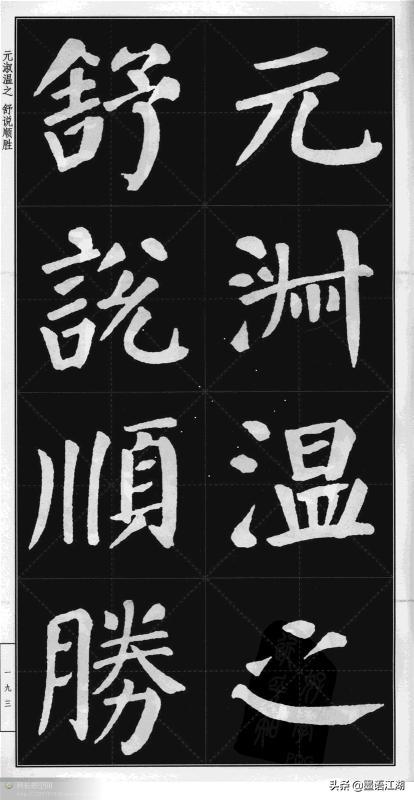 元淑温之
舒說順勝
元淑温之 舒说顺胜
一九三
头条 @墨语江湖